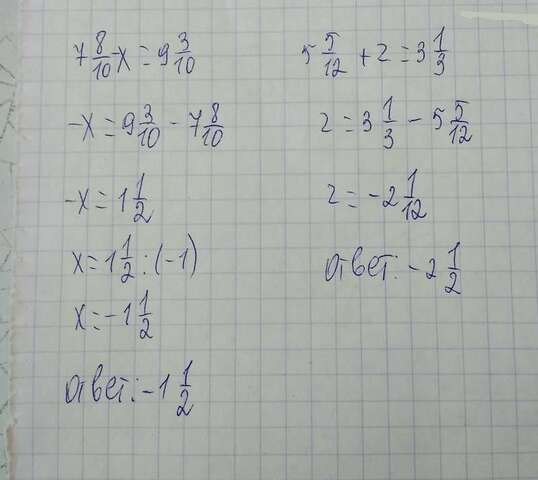 7 8/10 - x = 9 3/10
-x = 9 3/10 - 7 8/10
-x = 1 1/2
x = 1 1/2 : (-1)
x = -1 1/2
ответ: -1 1/2
5 5/12 + z = 3 1/3
z = 3 1/3 - 5 5/12
z = -2 1/12
ответ: -2 1/2